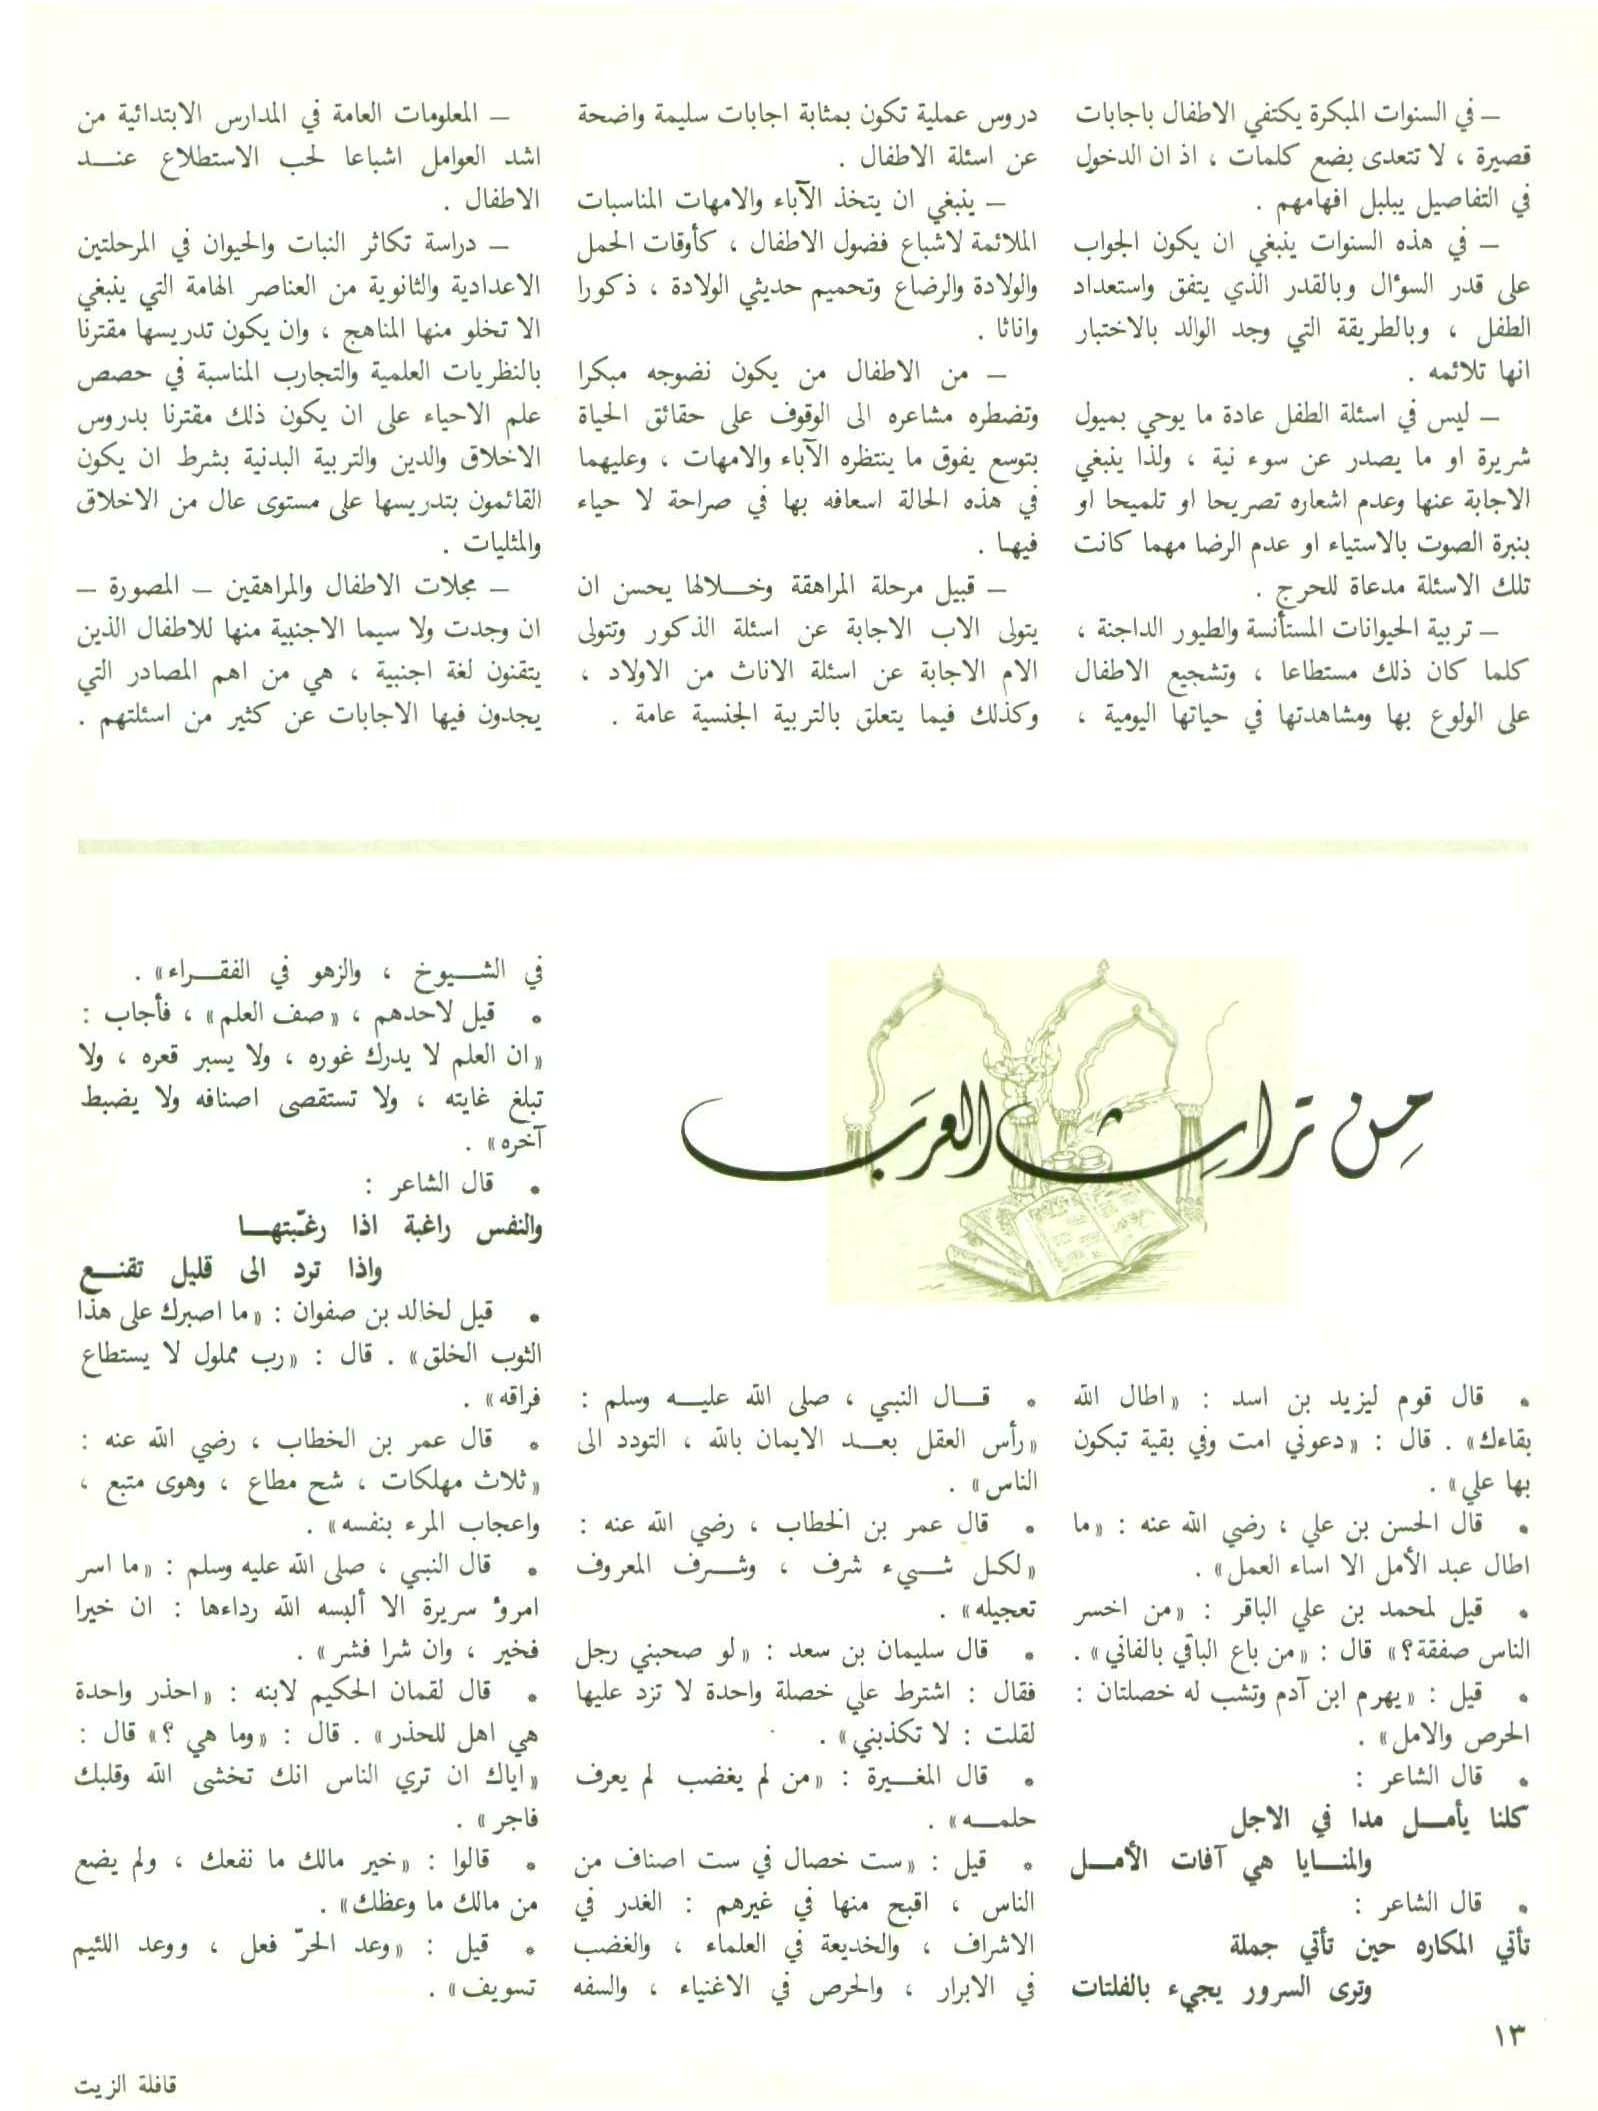 — في السنوات المبكرة يكتفي الاطفال باجابات
قصيرة ، لا تتعدى بضع كلمات ، اذ ان الدخول
في التفاصيل يبلبل افهامهم .
— في هذه السنوات ينبغي ان يكون الجواب
على قدر السؤال وبالقدر الذي يتفق واستعداد
الطفل ، وبالطريقة التي وجد الوالد بالاختبار
انها تلائمه .
— ليس في اسئلة الطفل عادة ما يوحي بميول
شريرة او ما يصدر عن سوء نية ، ولذا ينبغي
الاجابة عنها وعدم اشعاره تصريحا او تلميحا او
بنبرة الصوت بالاستياء او عدم الرضا مهما كانت
تلك الاسئلة مدعاة للحرج .
— تربية الحيوانات المستأنسة والطيور الداجنة ،
كلما كان ذلك مستطاعا ، وتشجيع الاطفال
على الولوع بها ومشاهدتها في حياتها اليومية ،
دروس عملية تكون بمثابة اجابات سليمة واضحة
عن اسئلة الاطفال .
— ينبغي ان يتخذ الآباء والامهات المناسبات
الملائمة لاشباع فضول الاطفال ، كأوقات الحمل
والولادة والرضاع وتحميم حديثي الولادة ، ذكورا
واناثا .
— من الاطفال من يكون نضوجه مبكرا
وتضطره مشاعره الى الوقوف على حقائق الحياة
بتوسع يفوق ما ينتظره الآباء والامهات ، وعليهما
في هذه الحالة اسعافه بها في صراحة لا حياء
فيها .
— قبيل مرحلة المراهقة وخلالها يحسن ان
يتولى الاب الاجابة عن اسئلة الذكور وتتولى
الام الاجابة عن اسئلة الاناث من الاولاد ،
وكذلك فيما يتعلق بالتربية الجنسية عامة .
— المعلومات العامة في المدارس الابتدائية من
اشد العوامل اشباعا لحب الاستطلاع عند
الاطفال .
— دراسة تكاثر النبات والحيوان في المرحلتين
الاعدادية والثانوية من العناصر الهامة التي ينبغي
الا تخلو منها المناهج ، وان يكون تدريسها مقترنا
بالنظريات العلمية والتجارب المناسبة في حصص
علم الاحياء على ان يكون ذلك مقترنا بدروس
الاخلاق والدين والتربية البدنية بشرط ان يكون
القائمون بتدريسها على مستوى عال من الاخلاق
والمثليات .
— مجلات الاطفال والمراهقين — المصورة —
ان وجدت ولا سيما الاجنبية منها للاطفال الذين
يتقنون لغة اجنبية ، هي من اهم المصادر التي
يجدون فيها الاجابات عن كثير من اسئلتهم .
مِن تراثِ العرَب
• قال قوم ليزيد بن اسد : «اطال الله
بقاءك» . قال : «دعوني امت وفي بقية تبكون
بها علي» .
• قال الحسن بن علي ، رضي الله عنه : «ما
اطال عبد الأمل الا اساء العمل» .
• قيل لمحمد بن علي الباقر : «من اخسر
الناس صفقة؟» قال : «من باع الباقي بالفاني» .
• قيل : «يهرم ابن آدم وتشب له خصلتان :
الحرص والامل» .
• قال الشاعر :
كلنا يأمل مدا في الاجل
والمنايا هي آفات الأمل
• قال الشاعر :
تأتي المكاره حين تأتي جملة
وترى السرور يجيء بالفلتات
• قال النبي ، صلى الله عليه وسلم :
«رأس العقل بعد الايمان بالله ، التودد الى
الناس» .
• قال عمر بن الخطاب ، رضي الله عنه :
«لكل شيء شرف ، وشرف المعروف
تعجيله» .
• قال سليمان بن سعد : «لو صحبني رجل
فقال : اشترط علي خصلة واحدة لا تزد عليها
لقلت : لا تكذبني» .
• قال المغيرة : «من لم يغضب لم يعرف
حلمه» .
• قيل : «ست خصال في ست اصناف من
الناس ، اقبح منها في غيرهم : الغدر في
الاشراف ، والخديعة في العلماء ، والغضب
في الابرار ، والحرص في الاغنياء ، والسفه
في الشيوخ ، والزهو في الفقراء» .
• قيل لاحدهم ، «صف العلم» ، فأجاب :
«ان العلم لا يدرك غوره ، ولا يسبر قعره ، ولا
تبلغ غايته ، ولا تستقصى اصنافه ولا يضبط
آخره» .
• قال الشاعر :
والنفس راغبة اذا رغّبتها
واذا ترد الى قليل تقنع
• قيل لخالد بن صفوان : «ما اصبرك على هذا
الثوب الخلق» . قال : «رب مملول لا يستطاع
فراقه» .
• قال عمر بن الخطاب ، رضي الله عنه :
«ثلاث مهلكات ، شح مطاع ، وهوى متبع ،
واعجاب المرء بنفسه» .
• قال النبي ، صلى الله عليه وسلم : «ما اسر
امرؤ سريرة الا ألبسه الله رداءها : ان خيرا
فخير ، وان شرا فشر» .
• قال لقمان الحكيم لابنه : «احذر واحدة
هي اهل للحذر» . قال : «وما هي ؟» قال :
«اياك ان تري الناس انك تخشى الله وقلبك
فاجر» .
• قالوا : «خير مالك ما نفعك ، ولم يضع
من مالك ما وعظك» .
• قيل : «وعد الحرّ فعل ، ووعد اللئيم
تسويف» .
١٣
قافلة الزيت